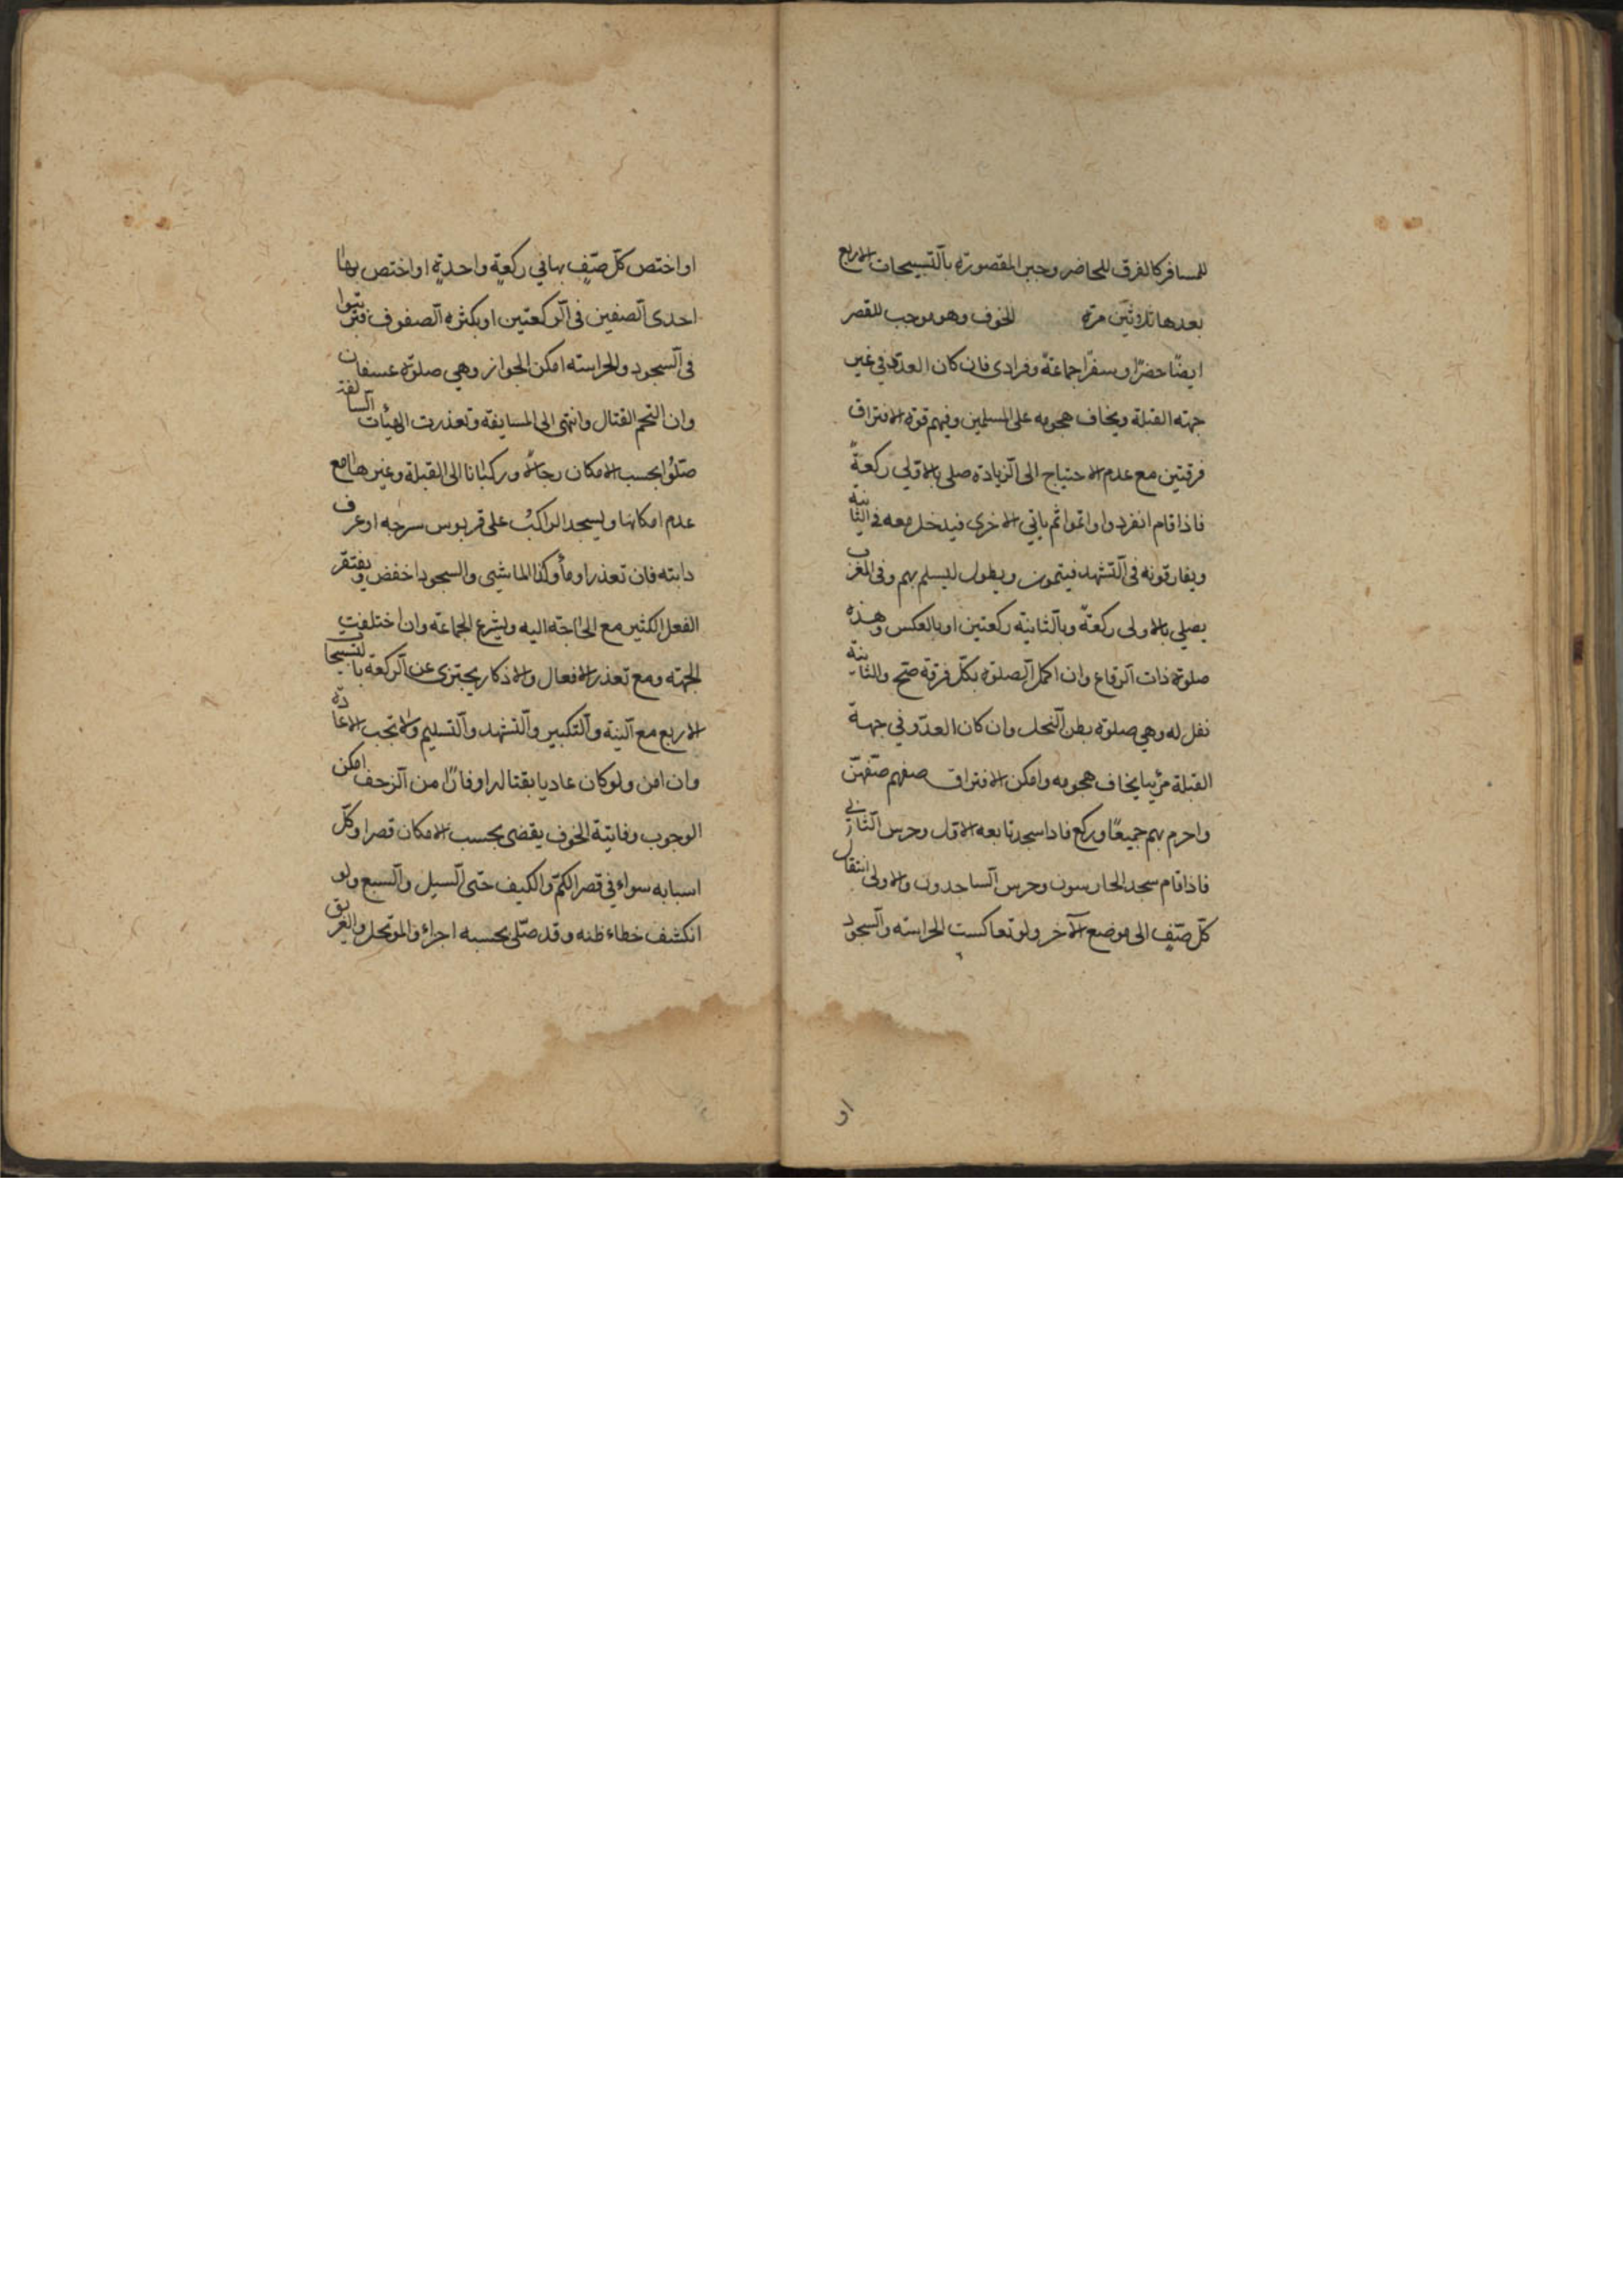 للمسافر كالفرق للحاضر وجبر المقصورة بالتسبيحات الاربع
بعدها ثلاثين مرة الخوف وهو موجب للقصر
ايضًا حضرًا وسفرًا جماعة وفرادى فان كان العدو في غير
جهة القبلة ويخاف هجومه على المسلمين وفيهم قوة الافتراق
فرقتين مع عدم الاحتياج الى الزيادة صلى بالاولى ركعةً
فاذا قام انفردوا واتموا ثم ياتي الاخرى فيدخل معه في الثانية
ويفارقونه في التشهد فيتمون ويطول ليسلم بهم وفي المغرب
يصلي بالاولى ركعة وبالثانية ركعتين او بالعكس وهذه
صلوة ذات الرقاع وان اكمل الصلوة بكل فرقة صح والثانية
نفل له وهي صلوة بطن النخل وان كان العدو في جهة
القبلة مرئيا يخاف هجومه وامكن الافتراق صفهم صفين
واحرم بهم جميعًا وركع فاذا سجد تابعه الاول وحرس الثاني
فاذا قام سجد الحارسون وحرس الساجدون والاولى انتقال
كل صف الى موضع الآخر ولو تعاكست الحراسة والسجود
او
او اختص كل صف بها في ركعة واحدة او اختص بها
احدى الصفين في الركعتين او بكثرة الصفوف فترتبوا
في السجود والحراسة امكن الجواز وهي صلوة عسفان
وان التحم القتال وانتهى الى المسايفة وتعذرت الهيئات السالفة
صلوا بحسب الامكان رجالا وركبانا الى القبلة وغيرها مع
عدم امكانها ويسجد الراكب على قربوس سرجه او عرف
دابته فان تعذر اومأ وكذا الماشي والسجود اخفض ويفتقر
الفعل الكثير مع الحاجة اليه ويشرع الجماعة وان اختلفت
الجهة ومع تعذر الافعال والاذكار يجتزى عن الركعة بالتسبيحات
الاربع مع النية والتكبير والتشهد والتسليم ولا تجب الاعادة
وان امن ولو كان عاديا بقتاله او فارًا من الزحف امكن
الوجوب وفائتة الخوف يقضى بحسب الامكان قصرا وكل
اسبابه سواء في قصر الكم والكيف حتى السيل والسبع ولو
انكشف خطاء ظنه وقد صلى بحسبه اجزاء والموتحل والغريق